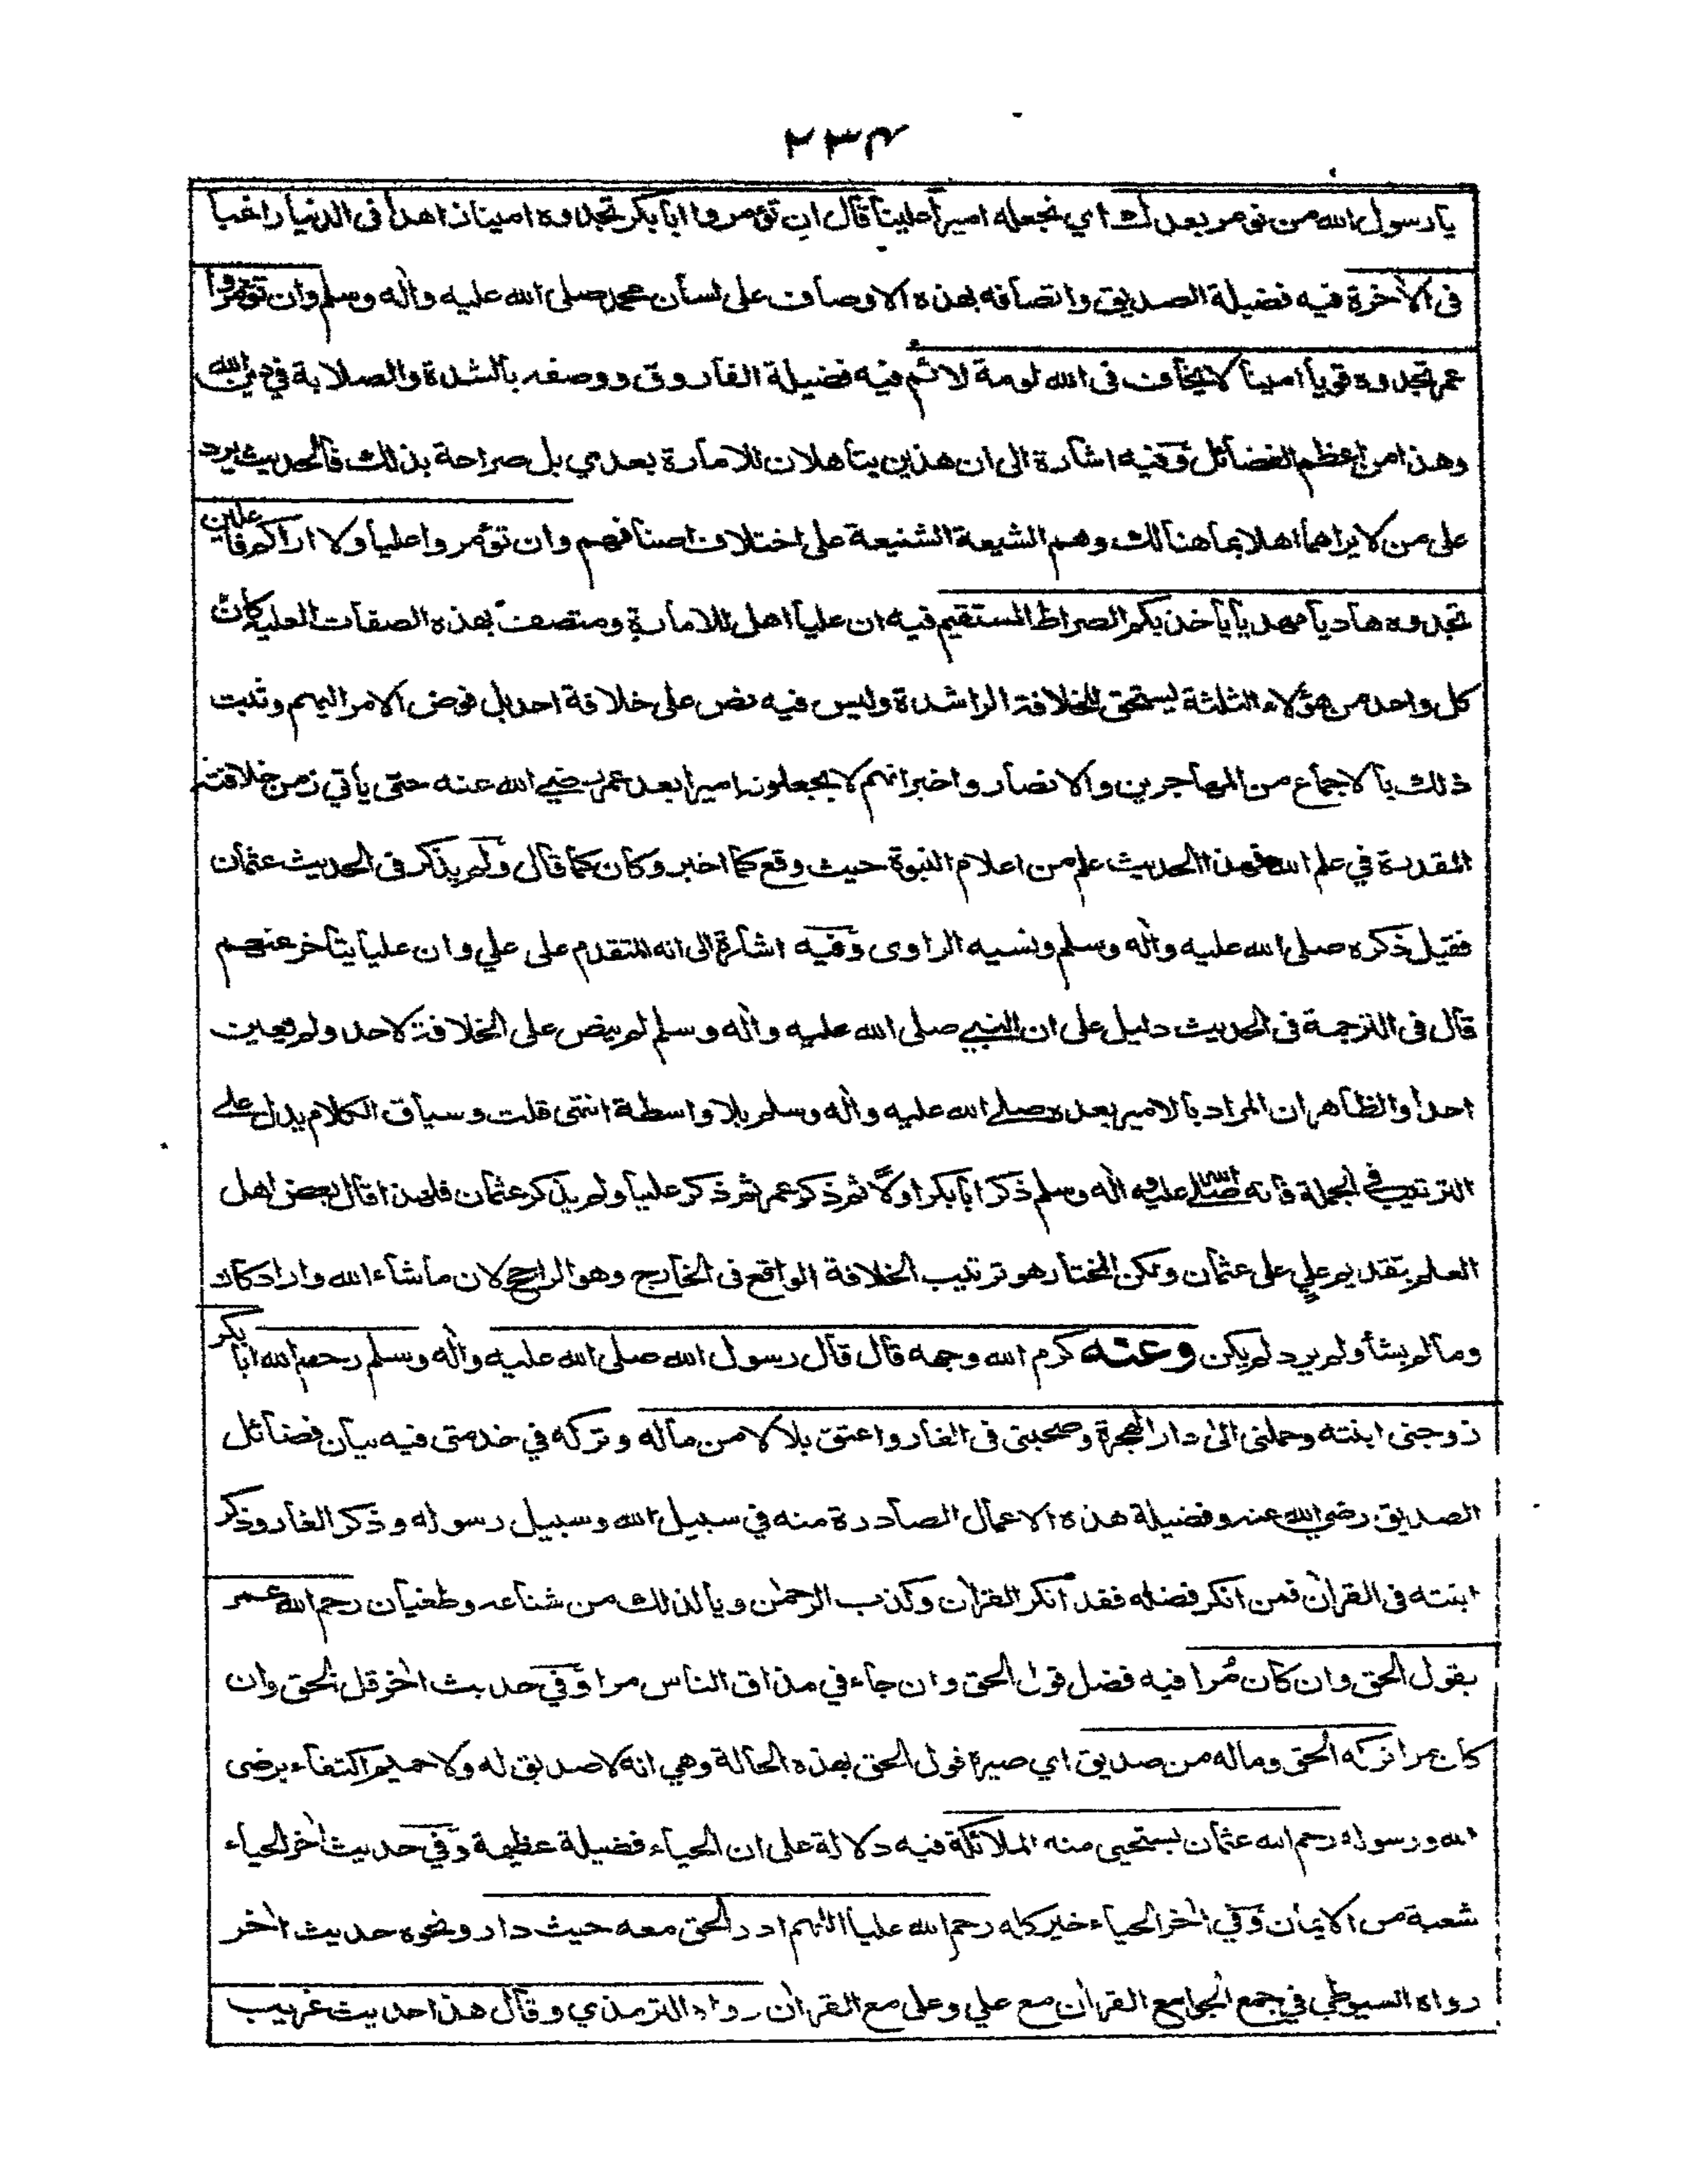 ٢٣٤
يا رسول الله من نومر بعدك اي نجعله اميرا علينا قال ان تؤمروا ابا بكر تجدوه امينا زاهدا فى الدنيا راغبا
فى الآخرة فيه فضيلة الصديق واتصافه بهذه الاوصاف على لسان محمد صلى الله عليه واٰله وسلم وان تؤمروا
عمر تجدوه قويا امينا لا يخاف فى الله لومة لائم فيه فضيلة الفاروق ووصفه بالشدة والصلابة في دين الله
وهذا من اعظم الفضائل وفيه اشارة الى ان هذين يتأهلان للامارة بعدي بل صراحة بذلك فالحديث يرد
على من لا يراهما اهلا بما هنالك وهم الشيعة الشنيعة على اختلاف اصنافهم وان تؤمروا عليا ولا اراكم فاعلين
تجدوه هاديا مهديا ياخذ بكم الصراط المستقيم فيه ان عليا اهل للامارة ومتصف بهذه الصفات العلية كان
كل واحد من هؤلاء الثلثة يستحق للخلافة الراشدة وليس فيه نص على خلافة احد بل فوض الامر اليهم وثبت
ذلك بالاجماع من المهاجرين والانصار واخبر انهم لا يجعلونه اميرا بعد عمر رضي الله عنه حتى يأتي زمن خلافته
المقدرة في علم الله فهذا الحديث علم من اعلام النبوة حيث وقع كما اخبر وكان كما قال ولم يذكر فى الحديث عثمان
فقيل ذكره صلى الله عليه واٰله وسلم ونسيه الراوى وفيه اشارة الى انه المتقدم على علي وان عليا يتأخر عنهم
قال فى الترجمة فى الحديث دليل على ان النبي صلى الله عليه واٰله وسلم لم ينص على الخلافة لاحد ولم يعين
احدا والظاهر ان المراد بالامير بعده صلى الله عليه واٰله وسلم بلا واسطة انتهى قلت وسياق الكلام يدل على
الترتيب في الجملة فانه صلى الله عليه واٰله وسلم ذكر ابا بكر اولا ثم ذكر عمر ثم ذكر عليا ولم يذكر عثمان فلهذا قال بعض اهل
العلم بتقديم علي على عثمان ولكن المختار هو ترتيب الخلافة الواقع فى الخارج وهو الراجح لان ما شاء الله واراد كان
وما لم يشأ ولم يرد لم يكن وعنه كرم الله وجهه قال قال رسول الله صلى الله عليه واٰله وسلم رحم الله ابا بكر
زوجنى ابنته وحملنى الى دار الهجرة وصحبنى فى الغار واعتق بلالا من ماله وتركه في خدمتى فيه بيان فضائل
الصديق رضي الله عنه وفضيلة هذه الاعمال الصادرة منه في سبيل الله وسبيل رسوله وذكر الغار وذكر
ابنته فى القرآن فمن انكر فضله فقد انكر القرآن وكذب الرحمٰن ويا لذلك من شناعه وطغيان رحم الله عمر
يقول الحق وان كان مُرا فيه فضل قول الحق وان جاء في مذاق الناس مرا وفي حديث اٰخر قل الحق وان
كان مرا تركه الحق وماله من صديق اي صيره قول الحق بهذه الحالة وهي انه لا صديق له ولا حميم اكتفاء برضى
الله ورسوله رحم الله عثمان يستحيى منه الملائكة فيه دلالة على ان الحياء فضيلة عظيمة وفي حديث اٰخر الحياء
شعبة من الايمان وفي اٰخر الحياء خير كله رحم الله عليا اللهم ادر الحق معه حيث دار ونحوه حديث اٰخر
رواه السيوطي في جمع الجوامع القرآن مع علي وعلى مع القرآن رواه الترمذي وقال هذا حديث غريب